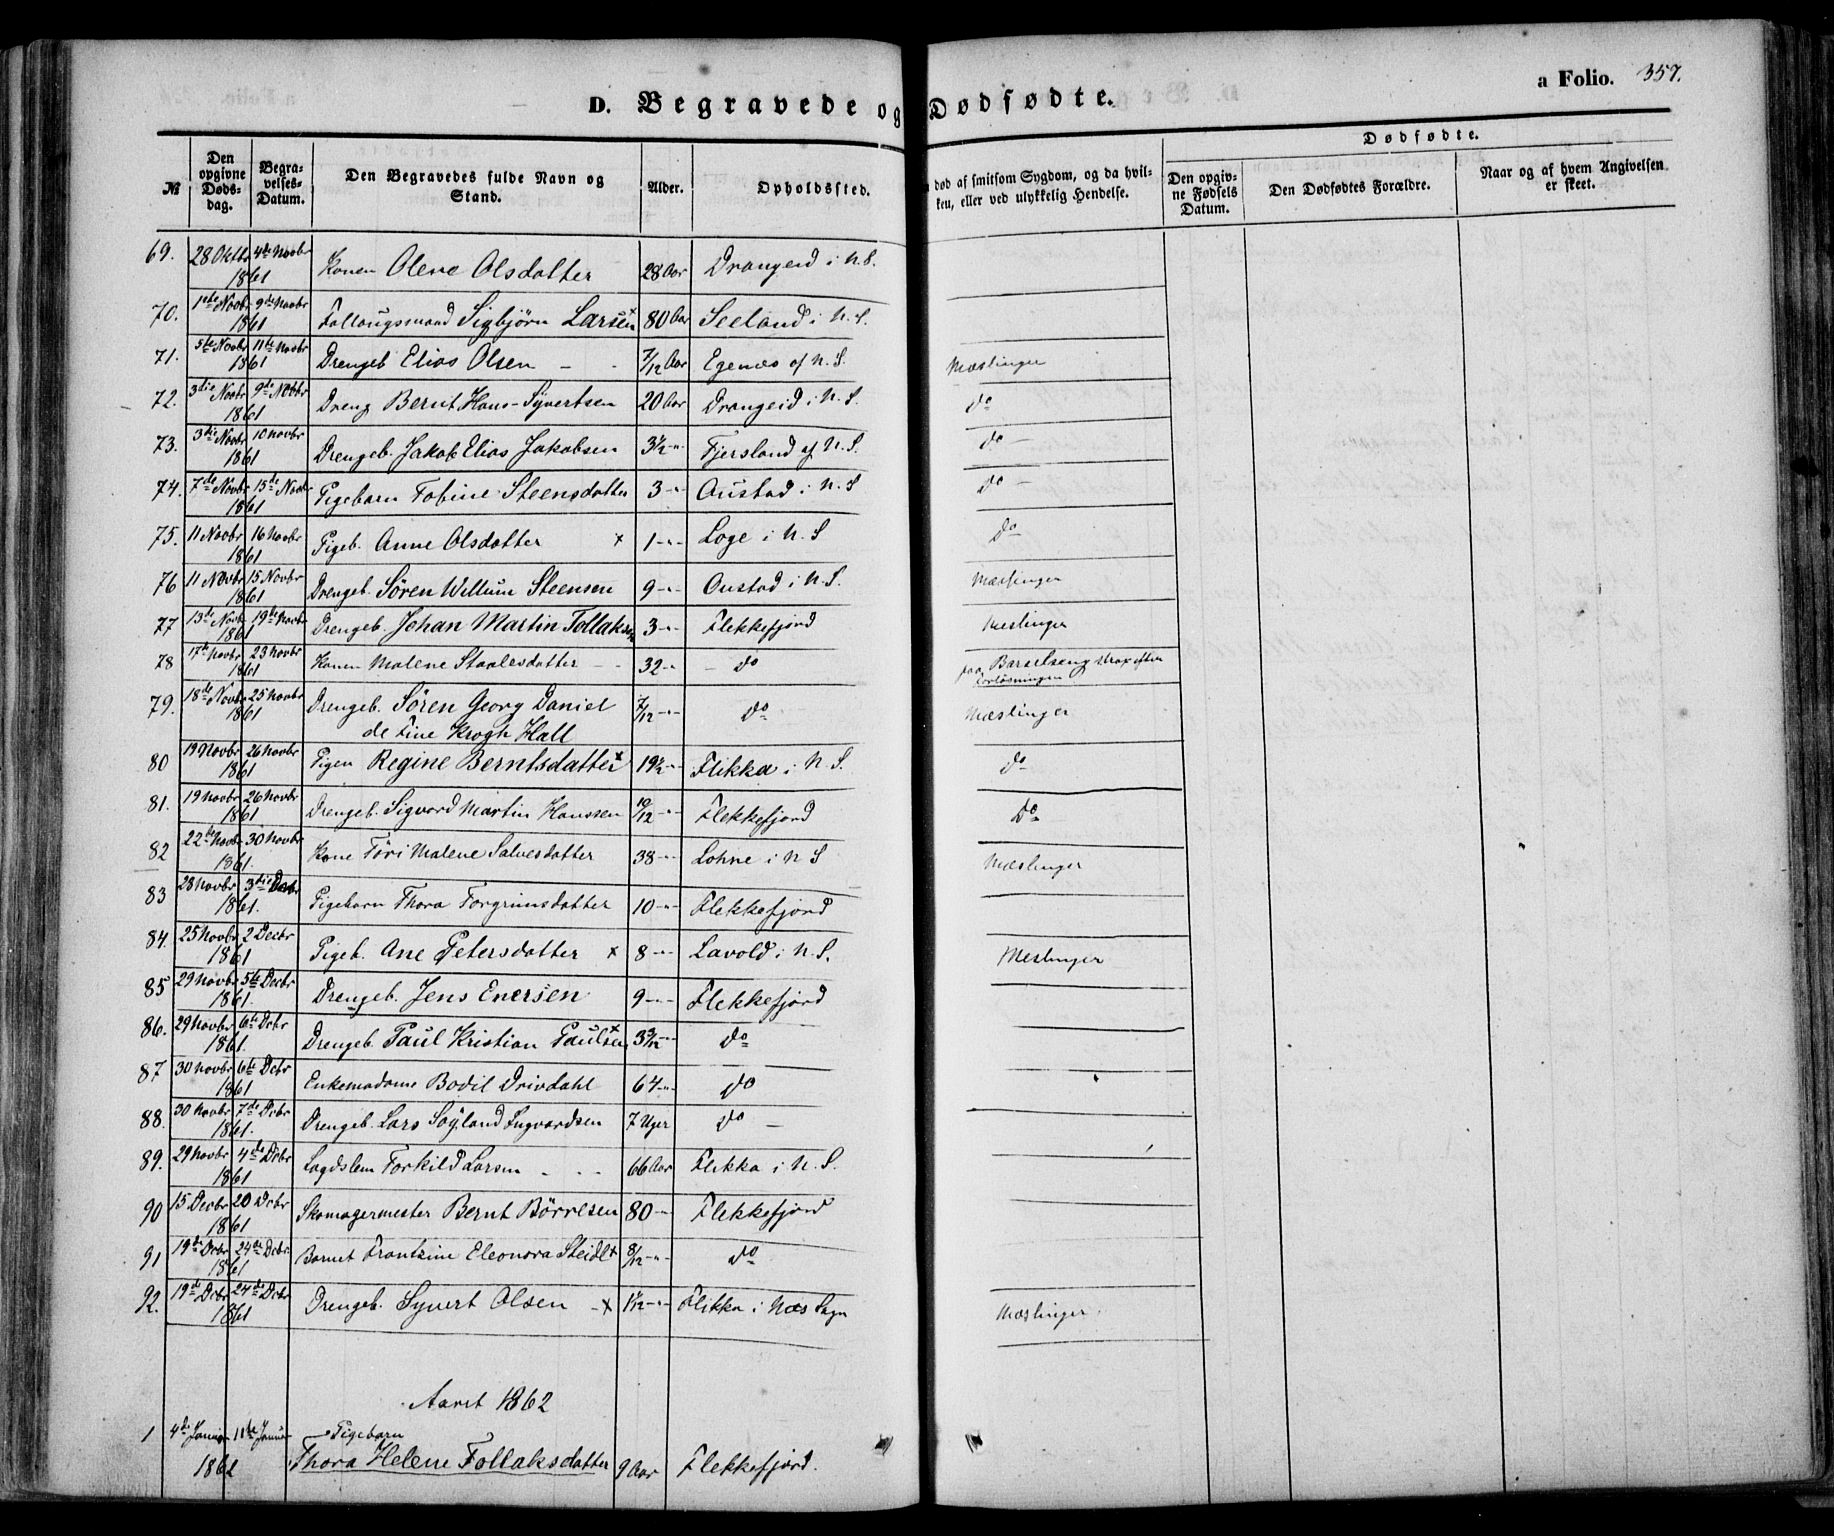 D. Begravede og Dødfødte.
a Folio. 357.
№
Den opgivne Døds-dag.
Begra-velses-Datum.
Den Begravedes fulde Navn og Stand.
Alder.
Opholdssted.
død af smitsom Sygdom, og da hvil-ken, eller ved ulykkelig Hendelse.
Dødfødte.
Den opgiv-ne Fødsels Datum.
Den Dødfødtes Forældre.
Naar og af hvem Angivelsen er skeet.
69. 28 Oktbr 1861 4de Novbr Konen Olene Olsdatter 28 Aar Drangeid i N.S.
70. 1ste Novbr 1861 9de Novbr Follougsmand Sigbjörn Larsen x 80 Aar Seeland i N.S.
71. 5te Novbr 1861 11te Novbr Drengeb Elias Olsen - - 7/12 Aar Egenæs af N.S. Mæslinger
72. 3die Novbr 1861 9de Novbr Dreng Bernt Hans Syvertsen 20 Aar Drangeid i N.S. do
73. 3die Novbr 1861 10 Novbr Drengeb. Jakob Elias Jakobsen 3½ -"- Fjersland af N.S. do -
74. 7de Novbr 1861 15de Novbr Pigebarn Tobine Steensdatter 3 -"- Oustad i N.S do -
75. 11 Novbr 1861 16 Novbr Pigeb. Anne Olsdatter x 1 -"- Loge i N.S do
76 11 Novbr 1861 15 Novbr Drengeb. Sören Willum Steensen 9 -"- Oustad i N.S. Mæslinger
77 13de Novbr 1861 19de Novbr Drengeb. Johan Martin Tollaksen 3 -"- Flekkefjord Meslinger
78 17de Novbr 1861 23 Novbr Konen Malene Staalesdatter - - 32 -"- - do paa Barselseng strax efter Forløsningen
79. 18de Novbr 1861 25 Novbr Drengeb. Sören Georg Daniel 7/12 -"- do Mæslinger
de Fine Krogh Hall
80 19 Novbr 1861 26 Novbr Pigen Regine Berntsdatter x 19½ -"- Flikka i N.S. do
81. 19 Novbr 1861 26 Novbr Drengeb. Sigvard Martin Hanssen 10/12 -"- Flekkefjord Do
82 22de Novbr 1861. 30 Novbr Kone Töri Malene Salvesdatter 38 -"- Lohne i N S Mæslinger
83 28 Novbr 1861. 3die Decbr Pigebarn Thora Torgrimsdatter 10 -"- Flekkefjord
84. 25 Novbr 1861 2 Decbr Pigeb. Ane Petersdatter x 8 -"- Lavold i N.S. Meslinger
85 29 Novbr 1861. 5te Decbr Drengeb. Jens Enersen 9 -"- Flekkefjord
86. 29 Novbr 1861. 6te Dcbr Drengeb. Paul Kristian Paulsen x 3 3/12 -"- do
87 30 Novbr 1861 6te Dcbr Enkemadame Bodil Drivdahl 64 -"- do
88. 30 Novbr 1861. 7de Dcbr Drengeb. Lars Søyland Ingvardsen 7 Uger do -
89. 29 Novbr 1861 4de Dcbr Lagdslem Torkild Larsen - - - 66 Aar Flikka i N.S.
90 15 Decbr 1861 20 Dcbr Skomagermester Bernt Börresen 80 -"- Flekkefjord
91 19de Dcbr 1861 24de Dcbr. Barnet Frantzine Eleonora Steidl x 8/12 -"- do
92. 19de Dcbr 1861 24de Dcbr Drengeb. Syvert Olsen - x 1 1/12 -"- Flikka i Næs Sogn Mæslinger.
Aaret 1862
1 4de Januar 1862 11te Januar Pigebarn
Thora Helene Tollaksdatter 9 Aar Flekkefjord.